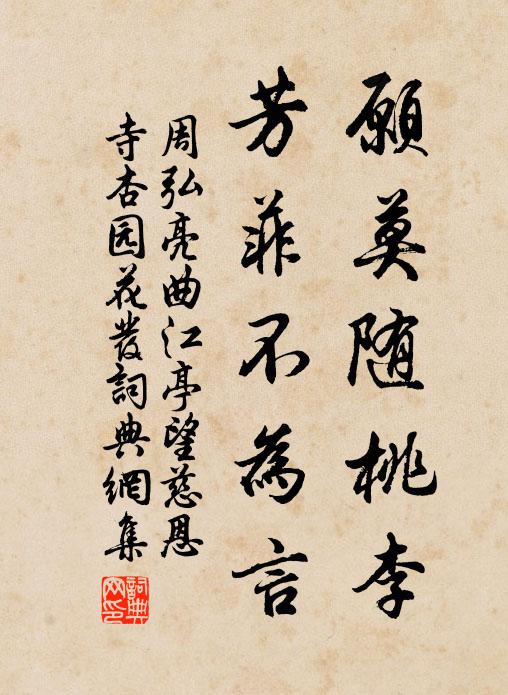 願莫随桃李
芳菲不為言
周弘亮曲江亭望慈恩
寺杏园花發詞典網集
詞典
网印